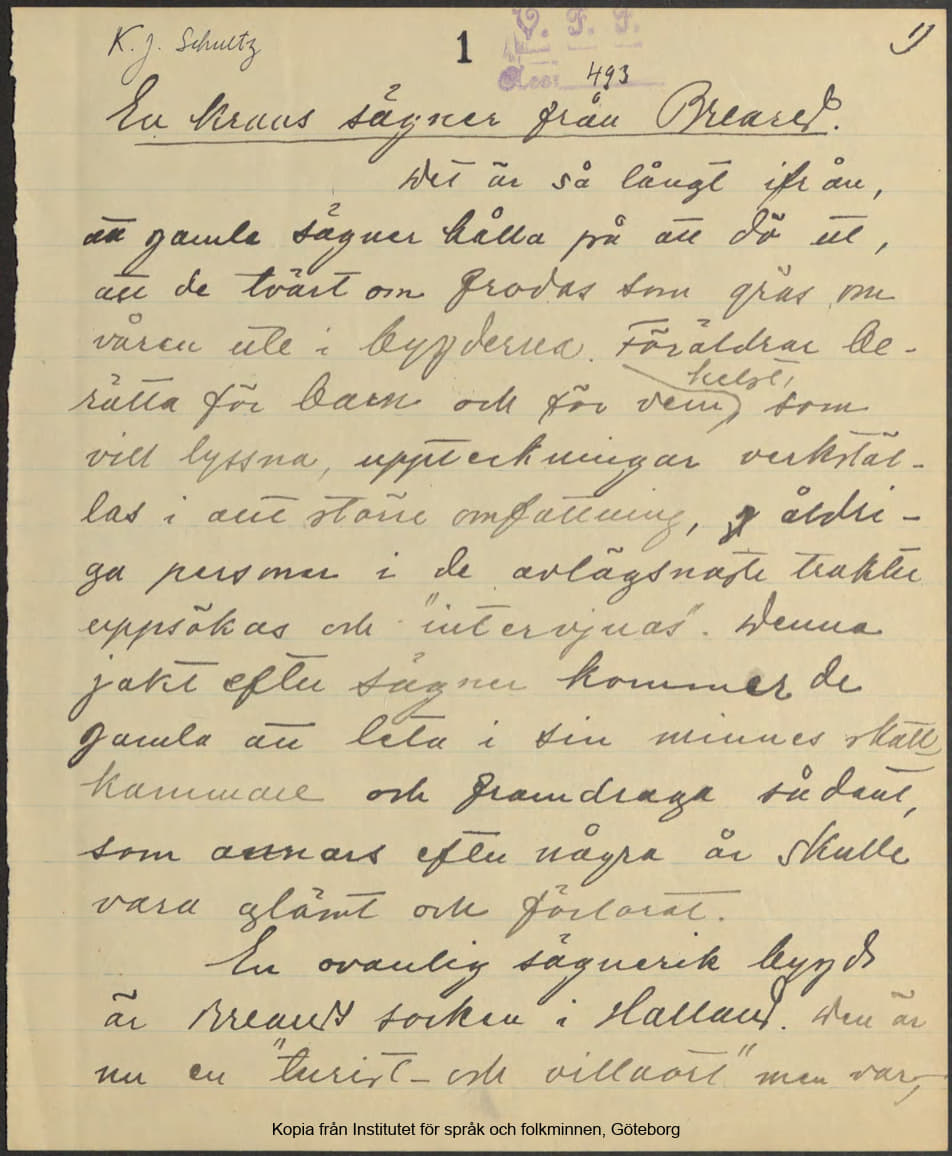 K. J. Schultz
1
1)
V. F. F.
Acc: 493
En krans sägner från Breared.
Det är så långt ifrån,
att gamla sägner hålla på att dö ut,
att de tvärt om frodas som gräs om
våren ute i bygderna. Föräldrar be-
rätta för barn och för vem helst, som
vill lyssna, uppteckningar verkstäl-
las i allt större omfattning, åldri-
ga personer i de avlägsnaste trakter
uppsökas och "intervjuas". Denna
jakt efter sägner kommer de
gamla att leta i sin minnes skatt
kammare och framdraga sådant,
som annars efter några år skulle
vara glömt och förlorat.
En ovanlig sägnerik bygd
är Breareds socken i Halland. Den är
nu en "turist- och villaort" men var,
Kopia från Institutet för språk och folkminnen, Göteborg